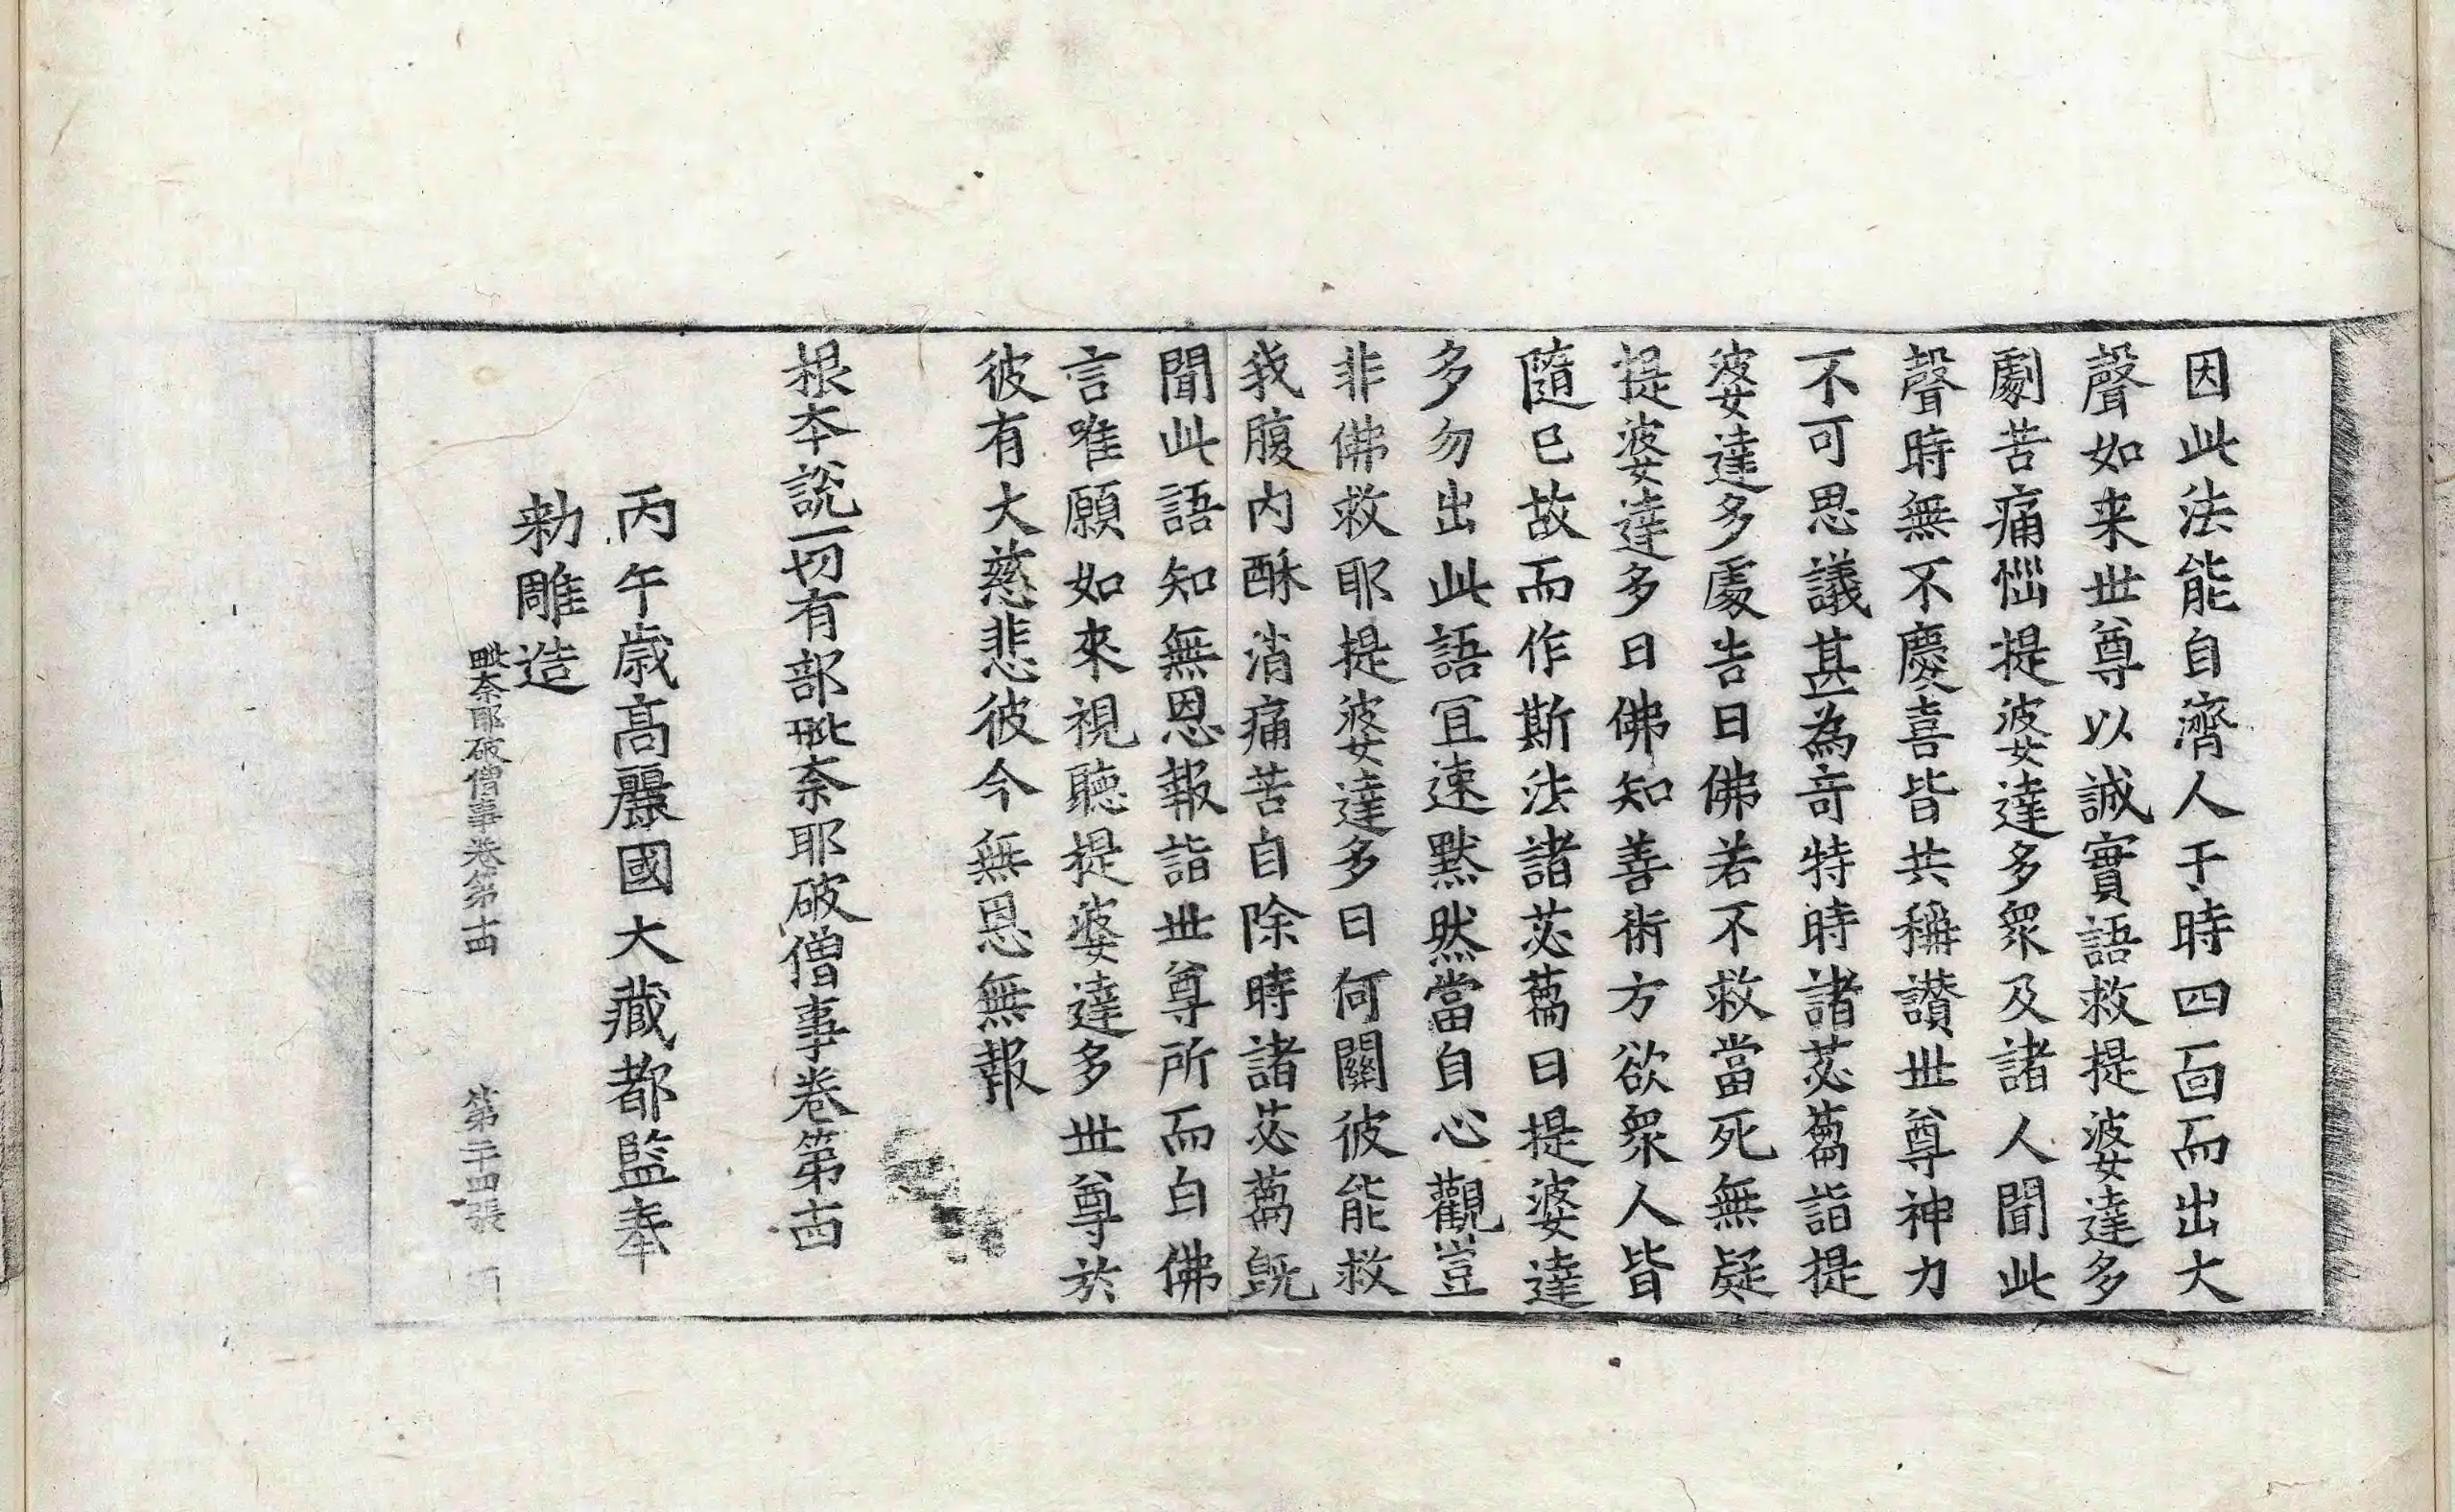 因此法能自濟人于時四面而出大
聲如来世尊以誠實語救提婆達多
劇苦痛惱提婆達多衆及諸人聞此
聲時無不慶喜皆共稱讃世尊神力
不可思議甚為奇特時諸苾蒭詣提
婆達多處告曰佛若不救當死無疑
提婆達多曰佛知善術方欲衆人皆
隨已故而作斯法諸苾蒭曰提婆達
多勿出此語冝速黙然當自心觀豈
非佛救耶提婆達多曰何關彼能救
我腹内酥消痛苦自除時諸苾蒭旣
聞此語知無恩報詣世尊所而白佛
言唯願如來視聽提婆達多世尊於
彼有大慈悲彼今無恩無報
根本說一切有部毗奈耶破僧事卷第十四
丙午歳高麗國大藏都監奉
勅雕造
毗奈耶破僧事卷第十四 第二十四張